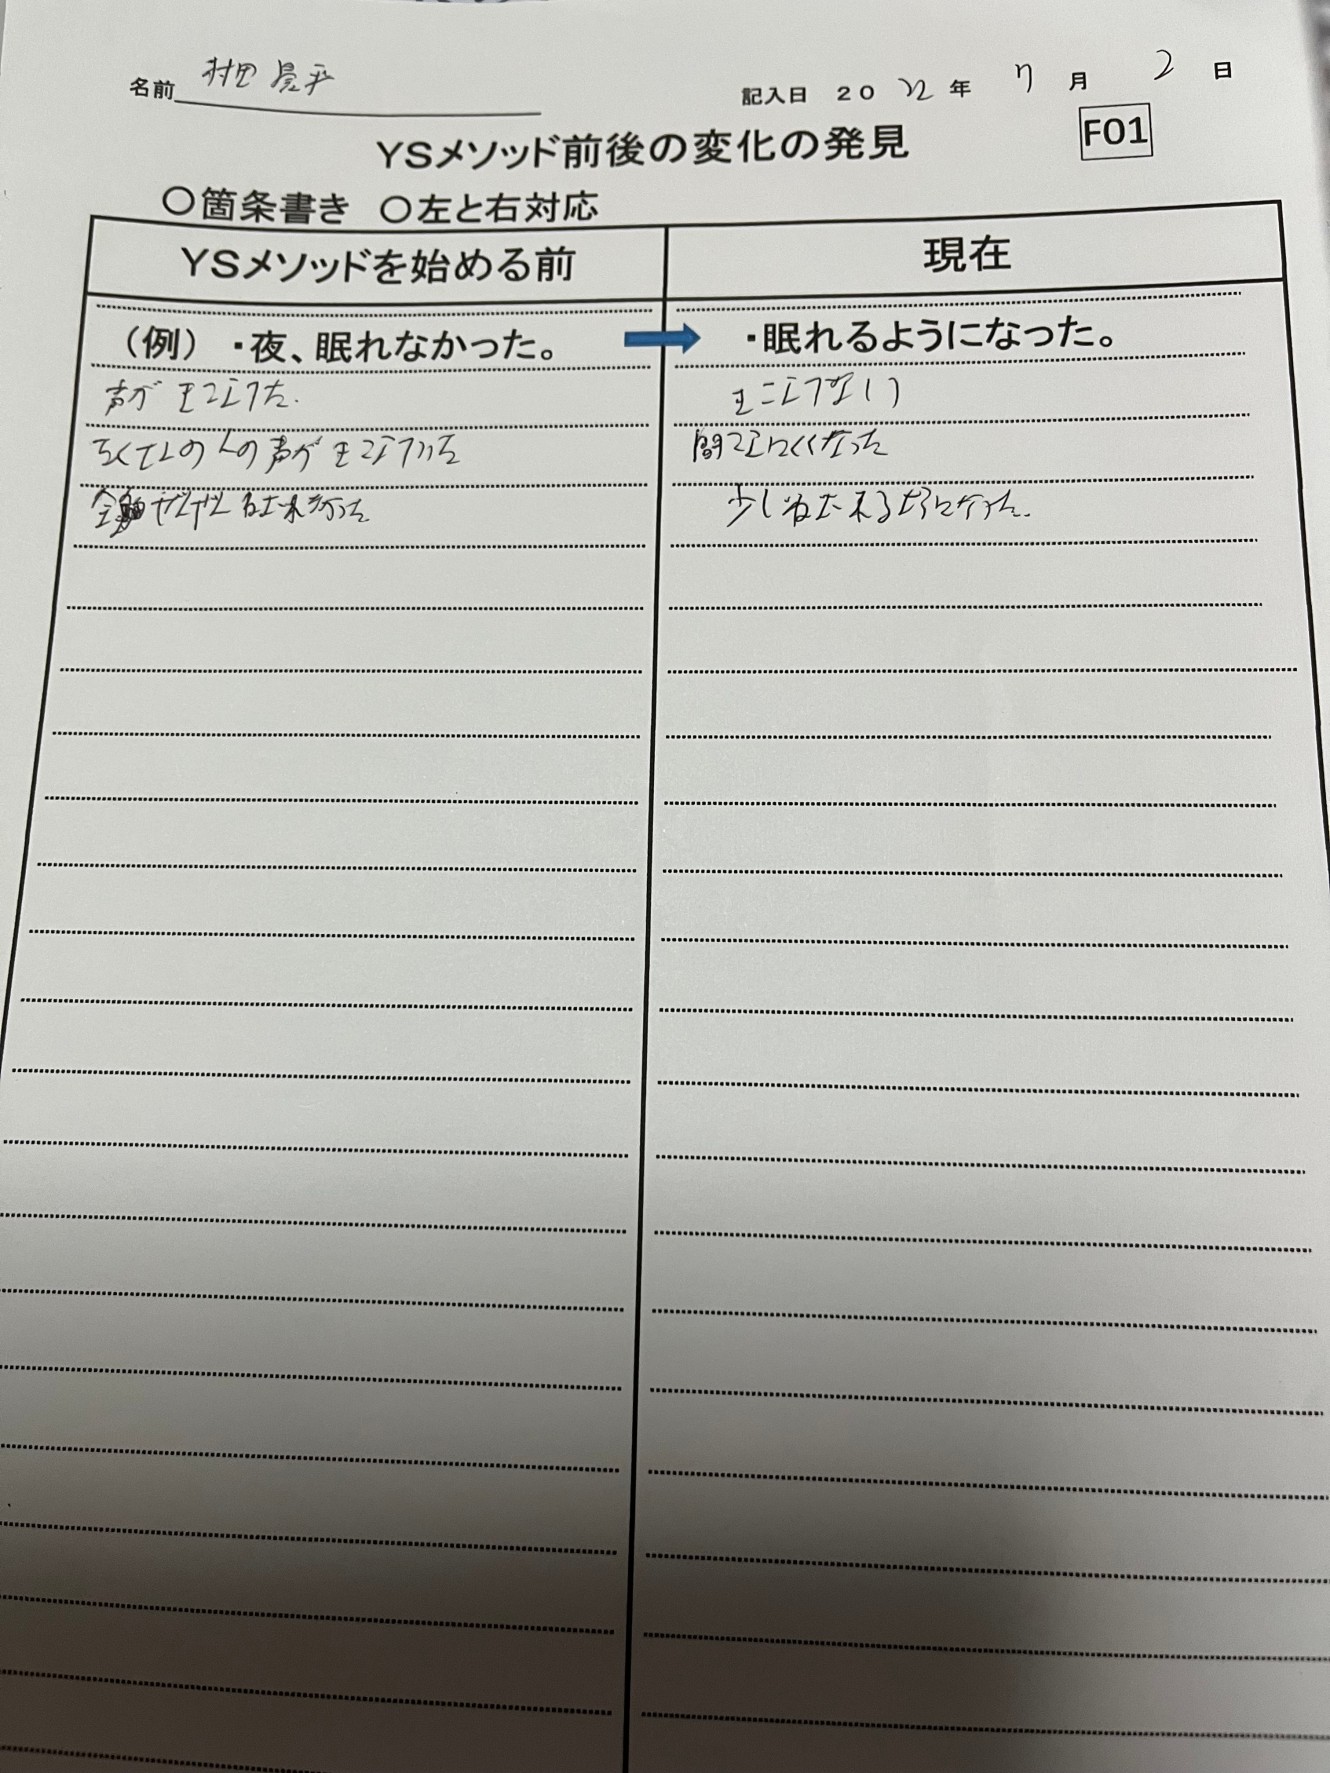 名前 村田 晃平
記入日 2022年 7月 2日
F01
YSメソッド前後の変化の発見
○箇条書き ○左と右対応
YSメソッドを始める前 現在
(例) ・夜、眠れなかった。 ・眠れるようになった。
声が きこえた. きこえない
たくさんの人の声が きこえた 聞こえにくくなった
全 ぜんぜん ねむれなかった 少しねむれるようになった.